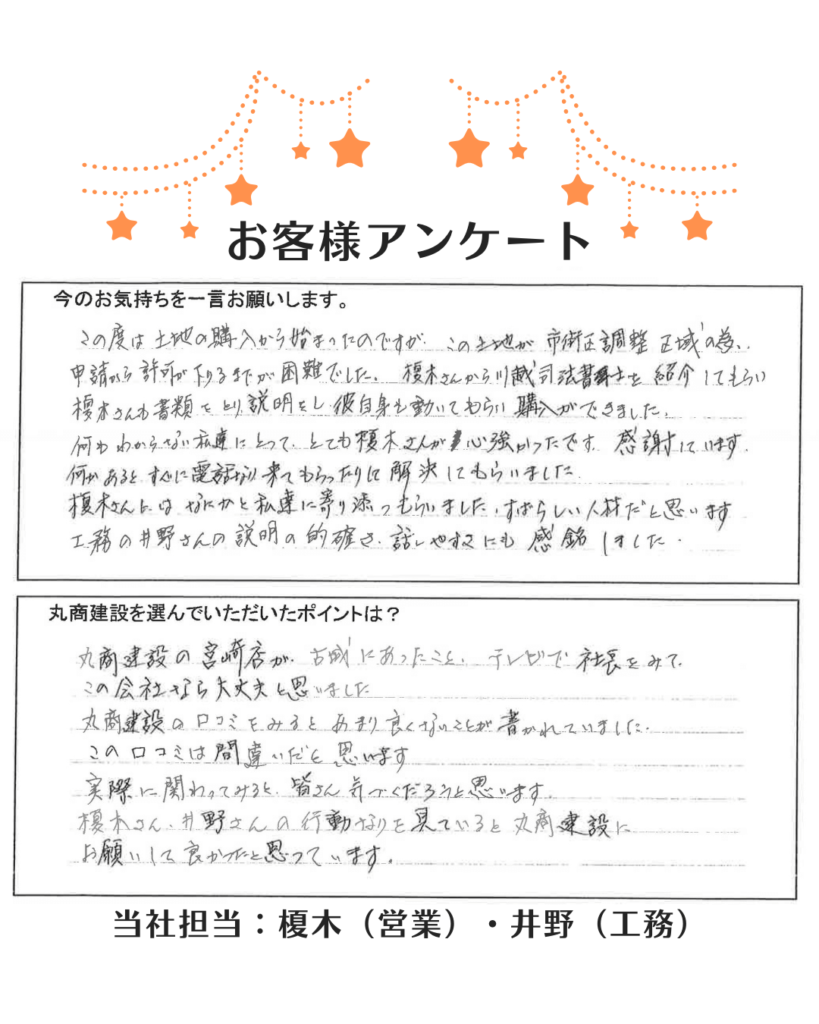 お客様アンケート
今のお気持ちを一言お願いします。
この度は土地の購入から始まったのですが、この土地が市街化調整区域の為、
申請から許可が下りるまでが困難でした。榎木さんから川越司法書士を紹介してもらい
榎木さんも書類をとり説明をし彼自身も動いてもらい購入ができました。
何もわからない私達にとって、とても榎木さんが心強かったです。感謝しています。
何かあるとすぐに電話なり来てもらったりして解決してもらいました
榎木さんには なにかと私達に寄り添ってもらいました。すばらしい人材だと思います
工務の井野さんの説明の的確さ、話しやすさにも感銘しました。
丸商建設を選んでいただいたポイントは？
丸商建設の宮崎店が、古城にあったこと、テレビで社長をみて、
この会社なら大丈夫と思いました
丸商建設の口コミをみるとあまり良くないことが書かれていました。
この口コミは間違いだと思います
実際に関わってみると、皆さん気づくだろうと思います。
榎木さん、井野さんの行動なりを見ていると丸商建設に
お願いして良かったと思っています。
当社担当：榎木（営業）・井野（工務）